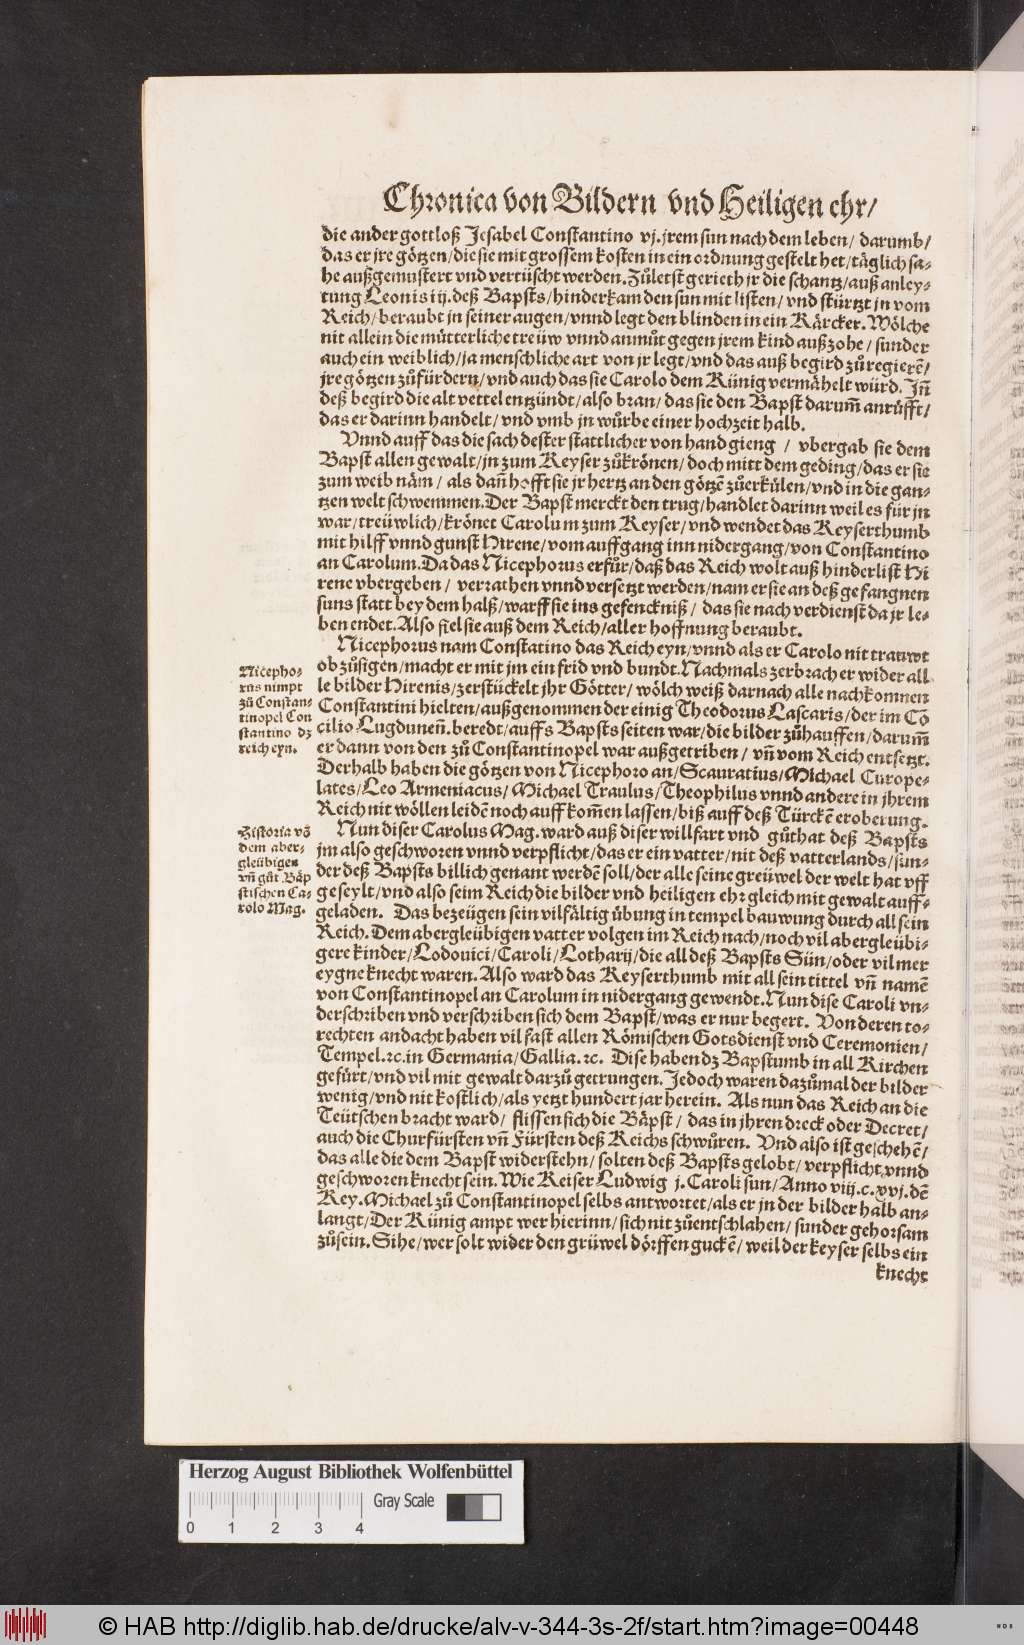 Chronica von Bildern vnd Heiligen ehr/
die ander gottloß Jesabel Constantino vj. jrem sun nach dem leben/ darumb/
das er jre götzen/die sie mit grossem kosten in ein ordnung gestelt het/täglich sa-
he außgemustert vnd vertüscht werden. Zůletst gerieth jr die schantz/auß anley-
tung Leonis iij. deß Bapsts/hinderkam den sun mit listen/ vnd stürtzt jn vom
Reich/beraubt jn seiner augen/vnnd legt den blinden in ein Kärcker. Wölche
nit allein die můtterliche treüw vnnd anmůt gegen jrem kind außzohe/ sunder
auch ein weiblich/ja menschliche art von jr legt/vnd das auß begird zů regierē/
jre götzen zůfürdern/vnd auch das sie Carolo dem Künig vermähelt würd. Jn̄
deß begird die alt vettel entzündt/also bran/ das sie den Bapst darum̄ anrůfft/
das er darinn handelt/ vnd vmb jn würbe einer hochzeit halb.
Vnnd auff das die sach dester stattlicher von hand gieng / vbergab sie dem
Bapst allen gewalt/jn zum Keyser zůkrönen/doch mitt dem geding/das er sie
zum weib näm/ als dañ hofft sie jr hertz an den götzē zůerkůlen/vnd in die gan-
tzen welt schwemmen. Der Bapst merckt den trug/handlet darinn weil es für jn
war/treüwlich/krönet Carolum zum Keyser/vnd wendet das Keyserthumb
mit hilff vnnd gunst Hirene/vom auffgang inn nidergang/von Constantino
an Carolum. Da das Nicephorus erfůr/daß das Reich wolt auß hinderlist Hi
rene vbergeben/ verrathen vnnd versetzt werden/nam er sie an deß gefangnen
suns statt bey dem halß/warff sie ins gefenckniß/ das sie nach verdienst da jr le-
ben endet. Also fiel sie auß dem Reich/aller hoffnung beraubt.
Nicephorus nam Constatino das Reich eyn/vnnd als er Carolo nit trauwt
ob zůsigen/macht er mit jm ein frid vnd bundt. Nachmals zerbrach er wider all
le bilder Hirenis/zerstückelt jhr Götter/ wölch weiß darnach alle nachkomnen
Constantini hielten/außgenommen der einig Theodorus Lascaris/der im Cō
cilio Lugduneñ. beredt/auffs Bapsts seiten war/die bilder zůhauffen/darum̄
er dann von den zů Constantinopel war außgetriben/ vñ vom Reich entsetzt.
Derhalb haben die götzen von Nicephoro an/Scauratius/Michael Curope-
lates/Leo Armeniacus/Michael Traulus/Theophilus vnnd andere in jhrem
Reich nit wöllen leidē noch auffkom̄en lassen/biß auff deß Türckē eroberung.
Nicepho-
rus nimpt
zů Constan-
tinopel Con
stantino dz
reich eyn.
Nun diser Carolus Mag. ward auß diser willfart vnd gůthat deß Bapsts
jm also geschworen vnnd verpflicht/das er ein vatter/nit deß vatterlands/sun-
der deß Bapsts billich genant werdē soll/der alle seine greüwel der welt hat vff
geseylt/vnd also seim Reich die bilder vnd heiligen ehr gleich mit gewalt auff-
geladen. Das bezeügen sein vilfältig übung in tempel bauwung durch all sein
Reich. Dem abergleübigen vatter volgen im Reich nach/noch vil abergleübi-
gere kinder/Lodouici/Caroli/Lotharij/die all deß Bapsts Sün/oder vil mer
eygne knecht waren. Also ward das Keyserthumb mit all sein tittel vñ namē
von Constantinopel an Carolum in nidergang gewendt. Nun dise Caroli vn-
derschriben vnd verschriben sich dem Bapst/was er nur begert. Von deren to-
rechten andacht haben vil fast allen Römischen Gotsdienst vnd Ceremonien/
Tempel. ꝛc. in Germania/Gallia. ꝛc. Dise haben dz Bapstumb in all Kirchen
gefůrt/vnd vil mit gewalt darzů getrungen. Jedoch waren dazůmal der bilder
wenig/vnd nit kostlich/als yetzt hundert jar herein. Als nun das Reich an die
Teütschen bracht ward/ flissen sich die Bäpst/ das in jhren dreck oder Decret/
auch die Churfürsten vñ Fürsten deß Reichs schwůren. Vnd also ist geschehē/
das alle die dem Bapst widerstehn/ solten deß Bapsts gelobt/ verpflicht vnnd
geschworen knecht sein. Wie Keiser Ludwig j. Caroli sun/Anno viij.c.xvj. dē
Key. Michael zů Constantinopel selbs antwortet/als er jn der bilder halb an-
langt/Der Künig ampt wer hierinn/ sich nit zůentschlahen/ sunder gehorsam
zůsein. Sihe/wer solt wider den grüwel dörffen guckē/weil der keyser selbs ein
knecht
Historia vō
dem aber-
gleübigen
vñ gůt Bäp
stischen Ca-
rolo Mag.
Herzog August Bibliothek Wolfenbüttel
Gray Scale
0 1 2 3 4
© HAB http://diglib.hab.de/drucke/alv-v-344-3s-2f/start.htm?image=00448